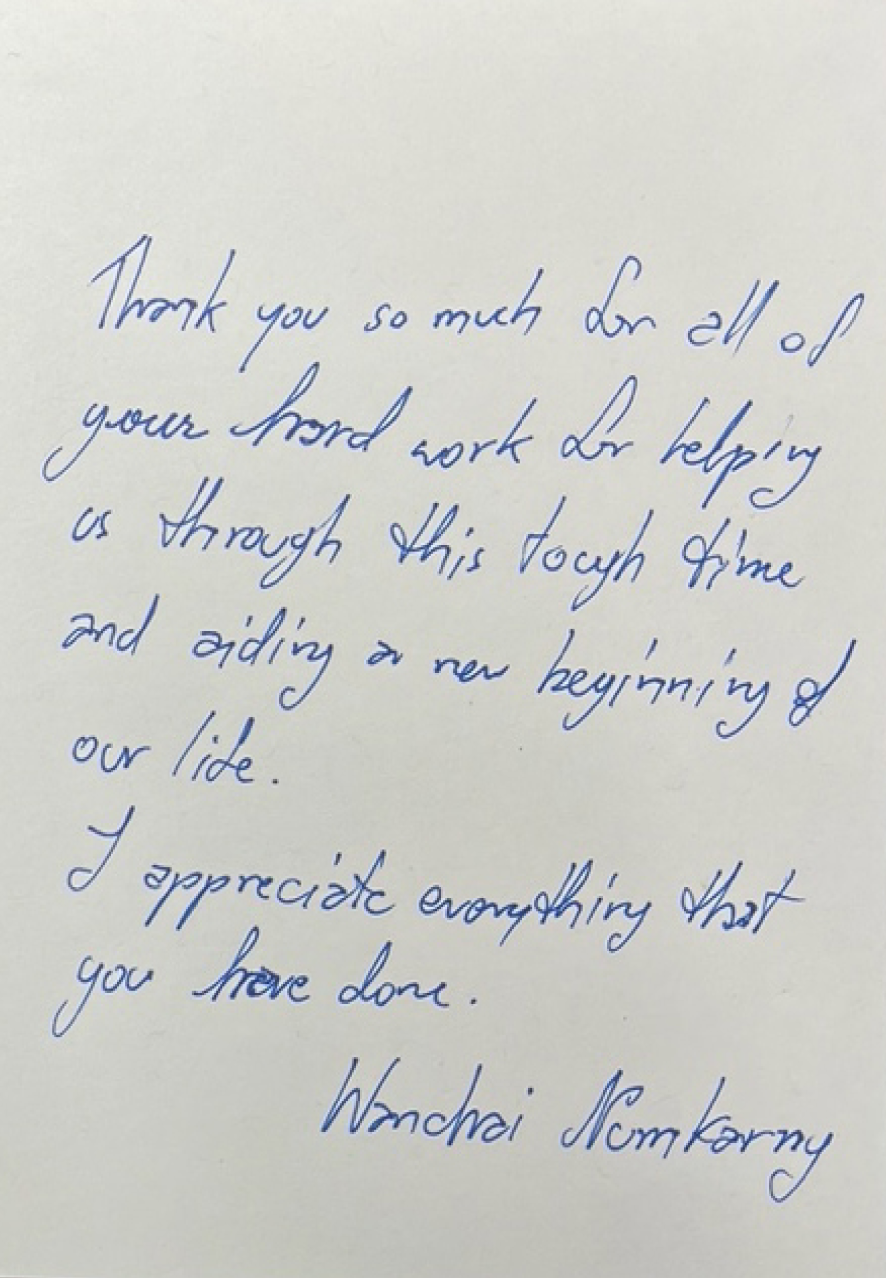 Thank you so much for all of
your hard work for helping
us through this tough time
and aiding a new beginning of
our life.
I appreciate everything that
you have done.
Wanchai Numkarny